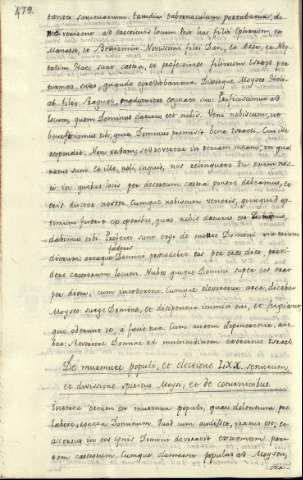 479.
tantes sanctuarium. Tamdiu tabernaculum portabatur, do-
nec venirent ad erectionis locum
Manasse, et Benjamin. Novissimi filii Dan, et Aser, et Nep-
talim. Haec sunt castra, et profectiones filiorum Israel per
turmas suas, quando egrediebantur. Dixitque Moyses Hobab
filio Raguel, cognato suo: Proficiscimur ad
locum, quem Dominus daturus est nobis. Veni nobiscum, ut
benefaciamus tibi, quia Dominus promisit bona Israeli. Cui ille
respondit: Non vadam, sed revertar in terram meam, in qua
natus sum. Et ille, noli, inquit, nos relinquere, tu enim nos-
ti in quibus locis per desertum castra ponere debeamus, et
eris ductor noster. Cumque nobiscum veneris, quidquid op-
timum fuerit ex opibus, quas nobis daturus est Dominus,
dabimus tibi. Profecti sunt ergo de monte Domini viam trium
dierum, arcaque foederis Domini praecedebat eos per tres dies, provi-
dens castrorum locum. Nubes quoque Domini super eos erat
per diem, cum incederent. Cumque elevaretur arca, dicebat
Moyses: surge Domine, et dissipentur inimici tui, et fugiant
qui oderunt te, a facie tua. Cum autem deponeretur, aie-
bat: Revertere Domine ad multitudinem exercitus Israel.
De murmure populi, et electione LXX. seniorum,
et divisione spiritus Moysi, et de coturnicibus.
Interea ortum est murmur populi, quasi dolentium pro
labore, contra Dominum. Quod cum audisset, iratus est, et
accensus in eos ignis Domini devoravit extremam par-
tem castrorum. Cumque clamasset populus ad Moysen,